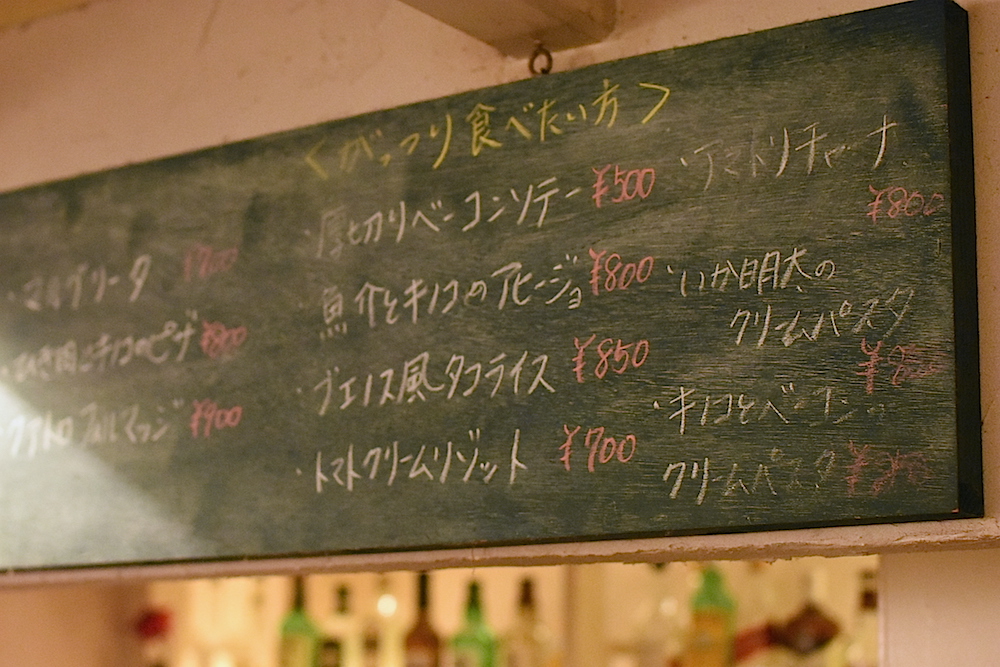 <がっつり食べたい方>
・マルゲリータ
ひき肉とキノコのピザ ¥800
クアトロフォルマッジ ¥900
・厚切りベーコンソテー ¥500
魚介とキノコのアヒージョ ¥800
・ブエノス風タコライス ¥850
・トマトクリームリゾット ¥700
・アマトリチャーナ
¥800
・いか明太の
クリームパスタ
・キノコとベーコンの
クリームパスタ